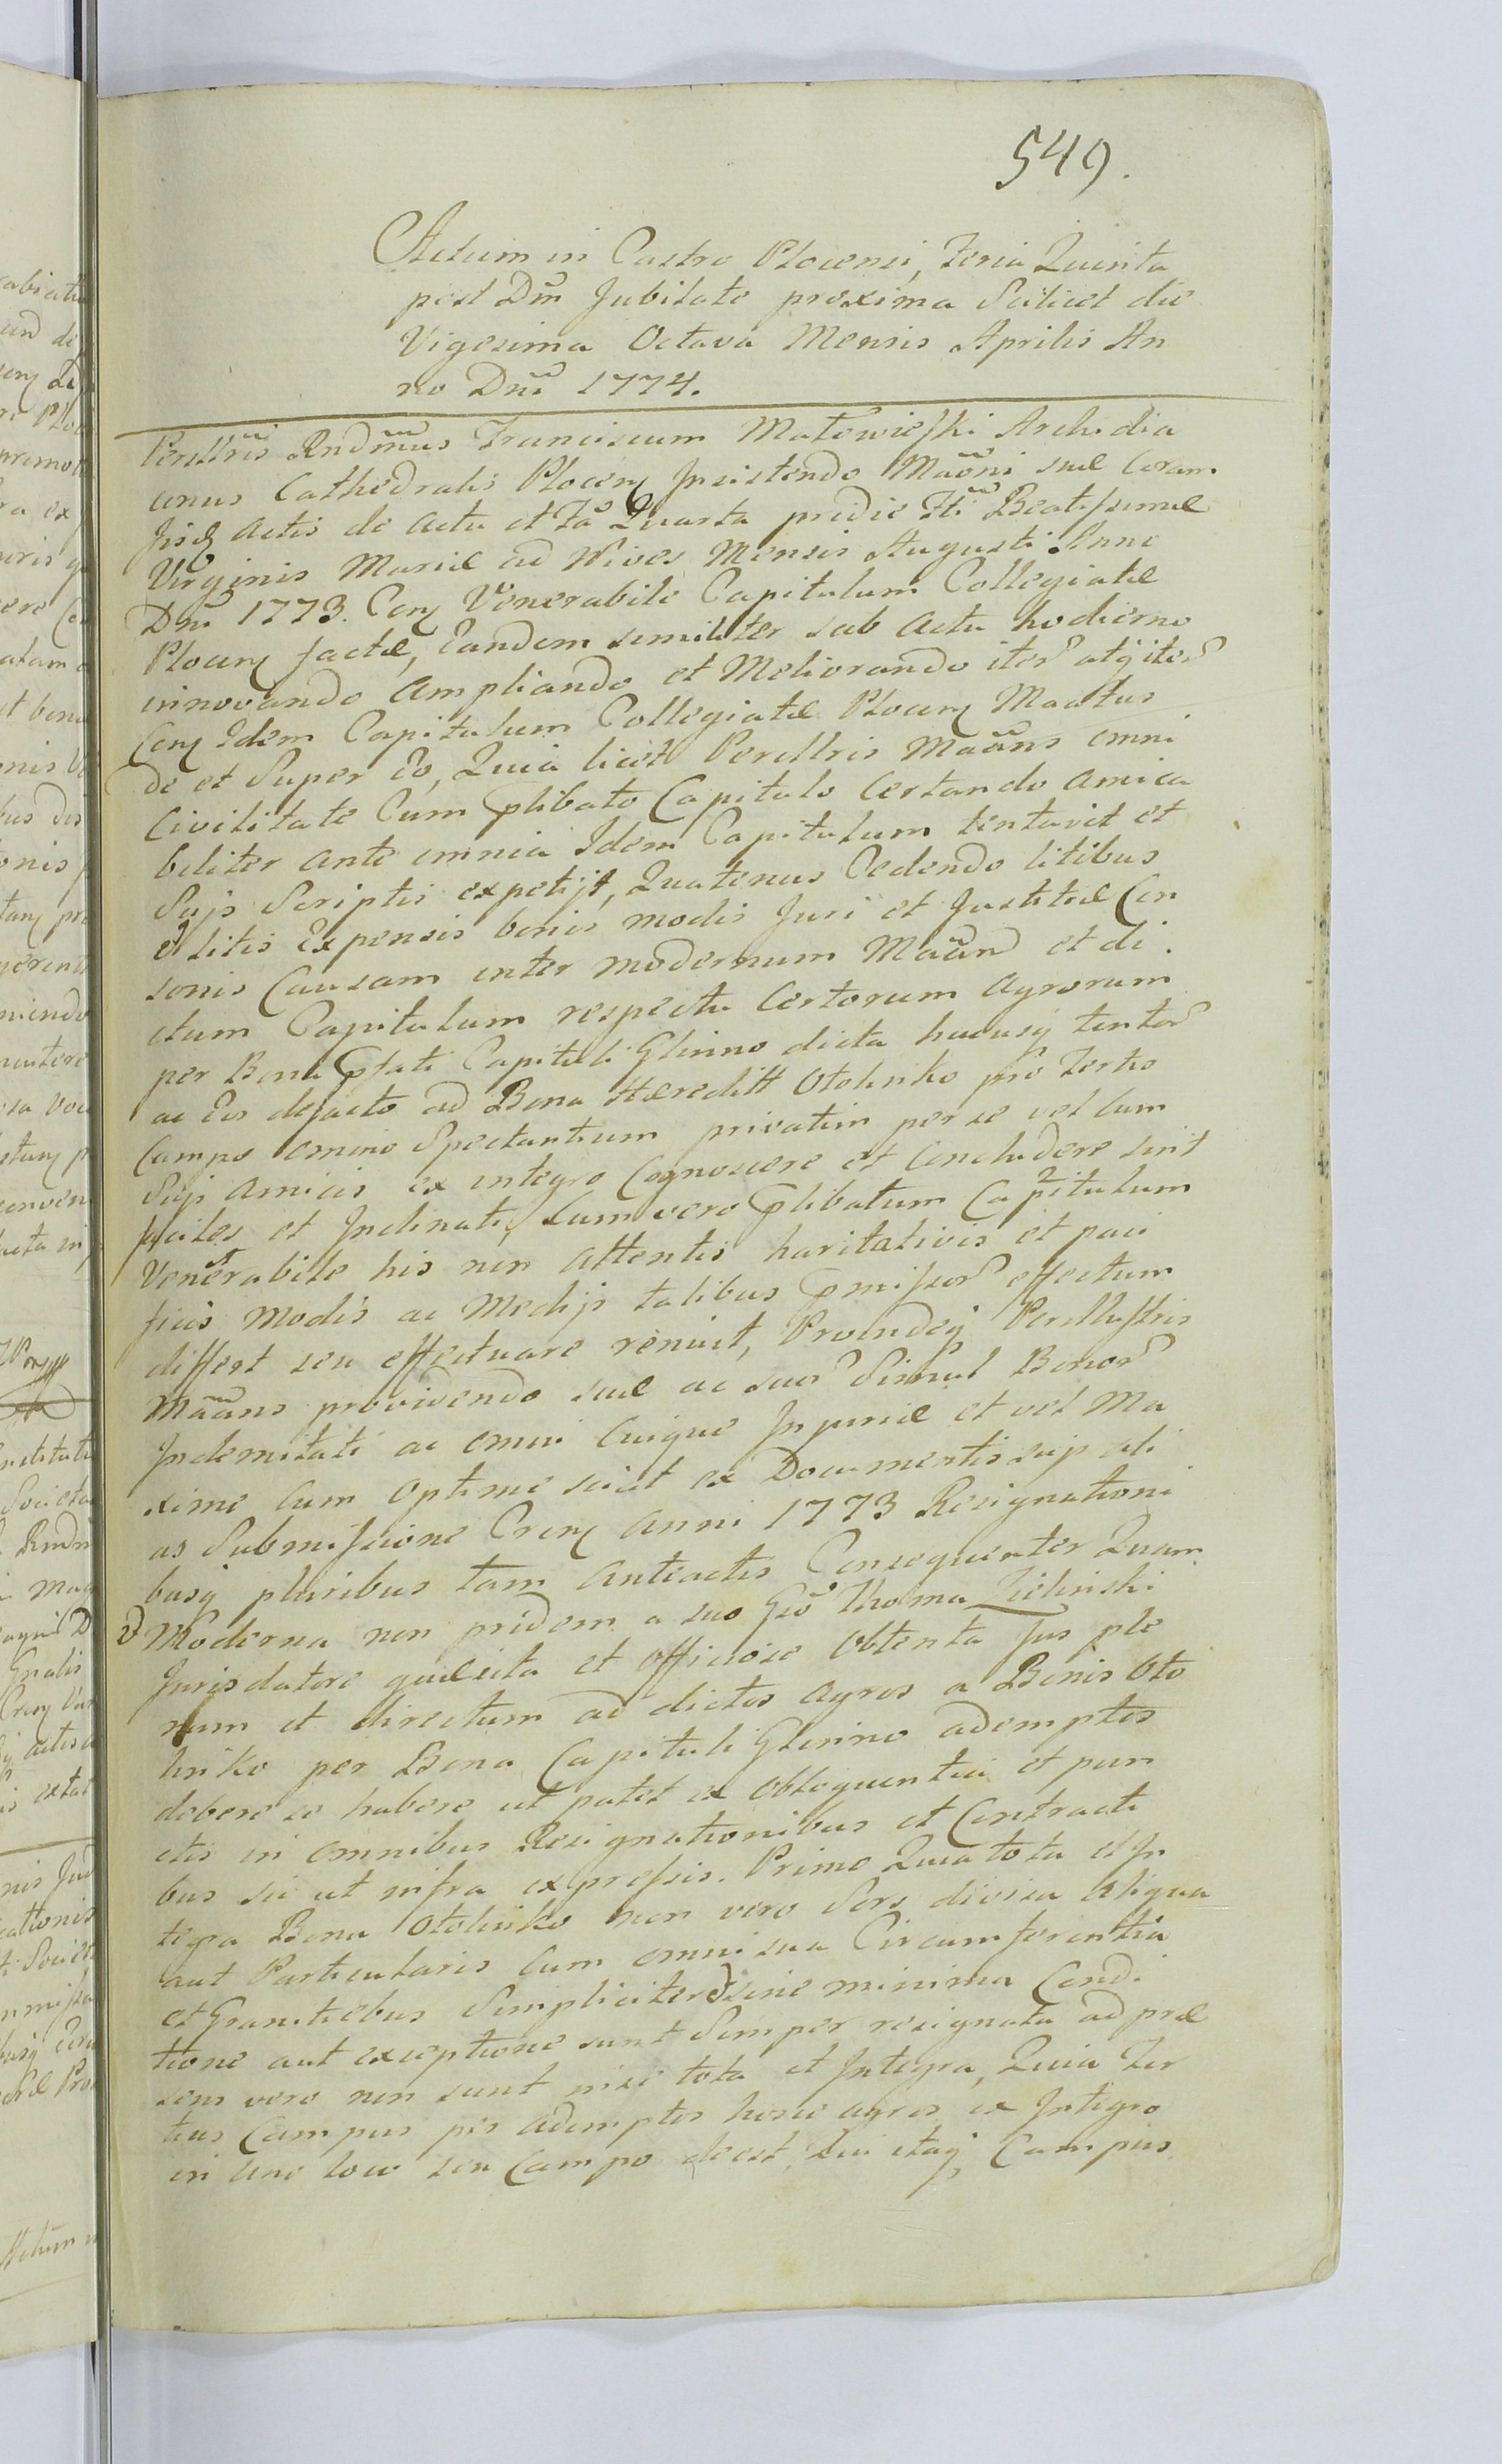 549.
Actum in Castro Plocensi, Feria Quinta
post Dm̃ Jubilate proxima Scilicet die
Vigesima Octava Mensis Aprilis An
no Dnĩ 1774.
Perillris Rndm̃us Franciscum Matowieski Archidia
conus Cathedralis Plocen Insistendo Maõni suæ Coram
Iisd Actis de Actu et Fã Quarta pridie Fti Beatissimæ
Virginis Mariæ ad Nives Mensis Augusti Anno
Dni 1773. Con Venerabile Capitulum Collegiatæ
Plocen factæ, Eandem similiter sub Actu hodierno
innovando Ampliando et Meliorando iter atq iter
Con Idem Capitulum Collegiatæ Plocen Maãtus
de et Super Eo, Quia licet Perillris Maãns omni
Civilitate Cum plibato Capitulo Certando Amica
biliter ante omnia Idem Capitulum tentavit et
Suis Scriptis expetijt, Quatenus Cedendo litibus
et litis Expensis bonis modis Juri et Justitiæ Con
sonis Causam inter modernum Maãn et di
ctum Capitulum respectu Certorum Agrorum
per Bona pfati Capituli Glinno dicta hucusq tentor
ac Eo defacto ad Bona Hæreditt Otolinko pro Tertio
Campo omnino Spectantium privatim per se vel Cum
Suis Amicis ex integro Cognoscere et Concludere sint
faciles et Inclinati, Cum vero plibatum Capitulum
Venerabile his non Attentis haritativis et paci
ficis Modis ac Medijs talibus pmissor effectum
differt seu effectuare renuit, Proindeq Perillustris
Maãns providendo suæ ac suor Simul Bonor
Indemnitati ac omni Cuique Injuriæ et vel Ma
xime Cum Optime sciat ex Documentis sup ali
as Submissione Cren Anni 1773 Resignationi
busq pluribus tam Anteactis Consequenter Quam
Moderna non pridem a suo Gso Thoma Zielinski
Jurisdatore quæsita et Officiose Obtenta Jus ple
num et directum ad dictos Agros a Bonis Oto
linko per Bona Capituli Glinno ademptos
debere se habere ut patet ex Obloquentia et pun
ctis in omnibus Resignationibus et Contracti
bus sic ut infra expressis. Primo Quia tota et In
tegra Bona Otolinko non vero Sors divisa aliqua
aut Particularis Cum omni sua Circumferentia
et Granitiebus Simpliciter et sine minima Condi
tione aut exceptione sunt Semper resignata ad præ
sens vero non sunt nisi tota et Integra, Quia Ter
tius Campus per ademptos hosce agros ex Integro
in uno loco seu Campo deest, Cui itaq Campus